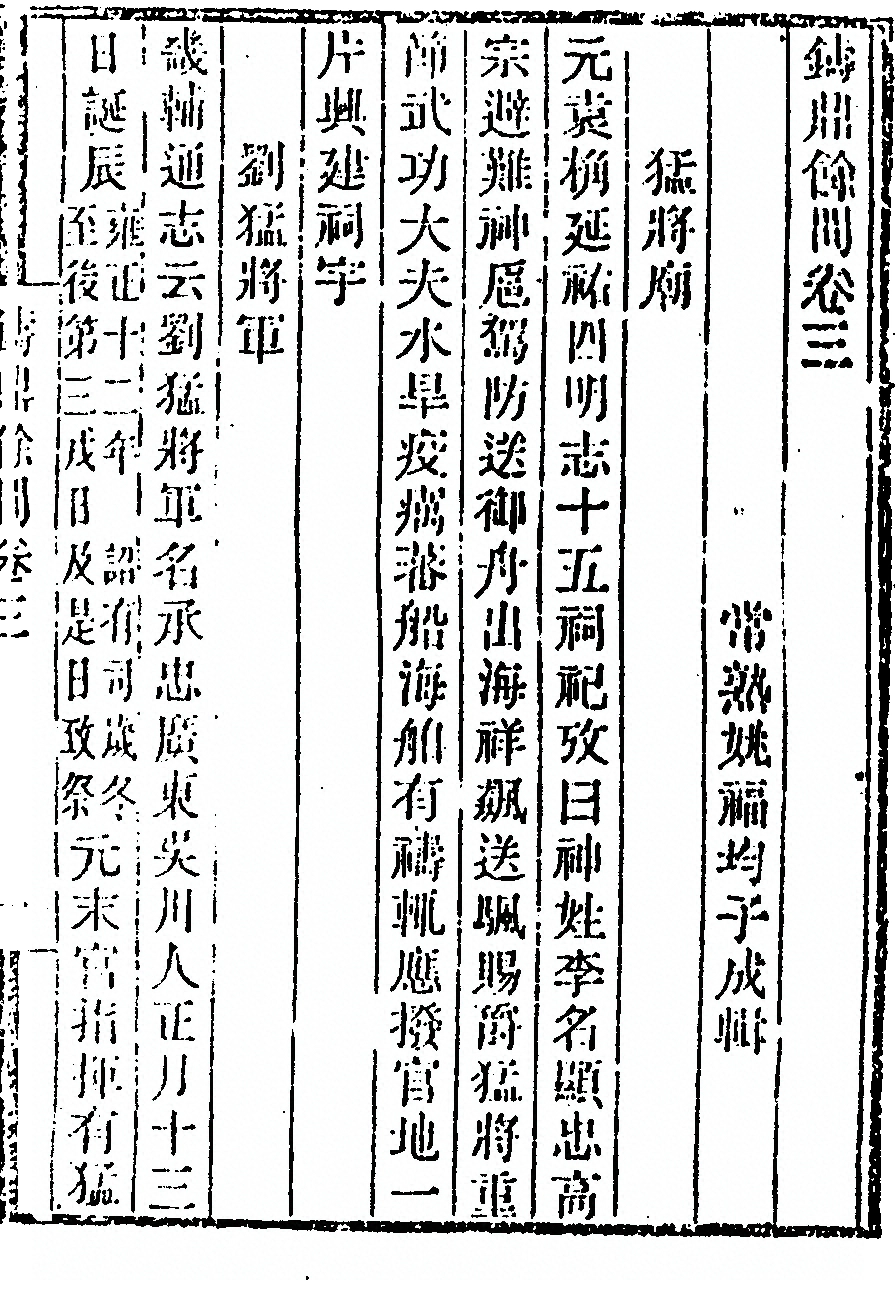 鑄鼎餘聞卷三
常熟姚福均子成輯
猛將廟
元袁桷延祐四明志十五祠祀攷曰神姓李名顯忠高
宗避難神扈駕防送御舟出海祥飆送颿賜爵猛將重
節武功大夫水旱疫癘蕃船海船有禱輒應撥官地一
片興建祠宇
劉猛將軍
畿輔通志云劉猛將軍名承忠廣東吳川人正月十三
日誕辰雍正十二年詔有司歲冬至後第三戌日及是日致祭元末官指揮有猛
鑄鼎餘聞卷三